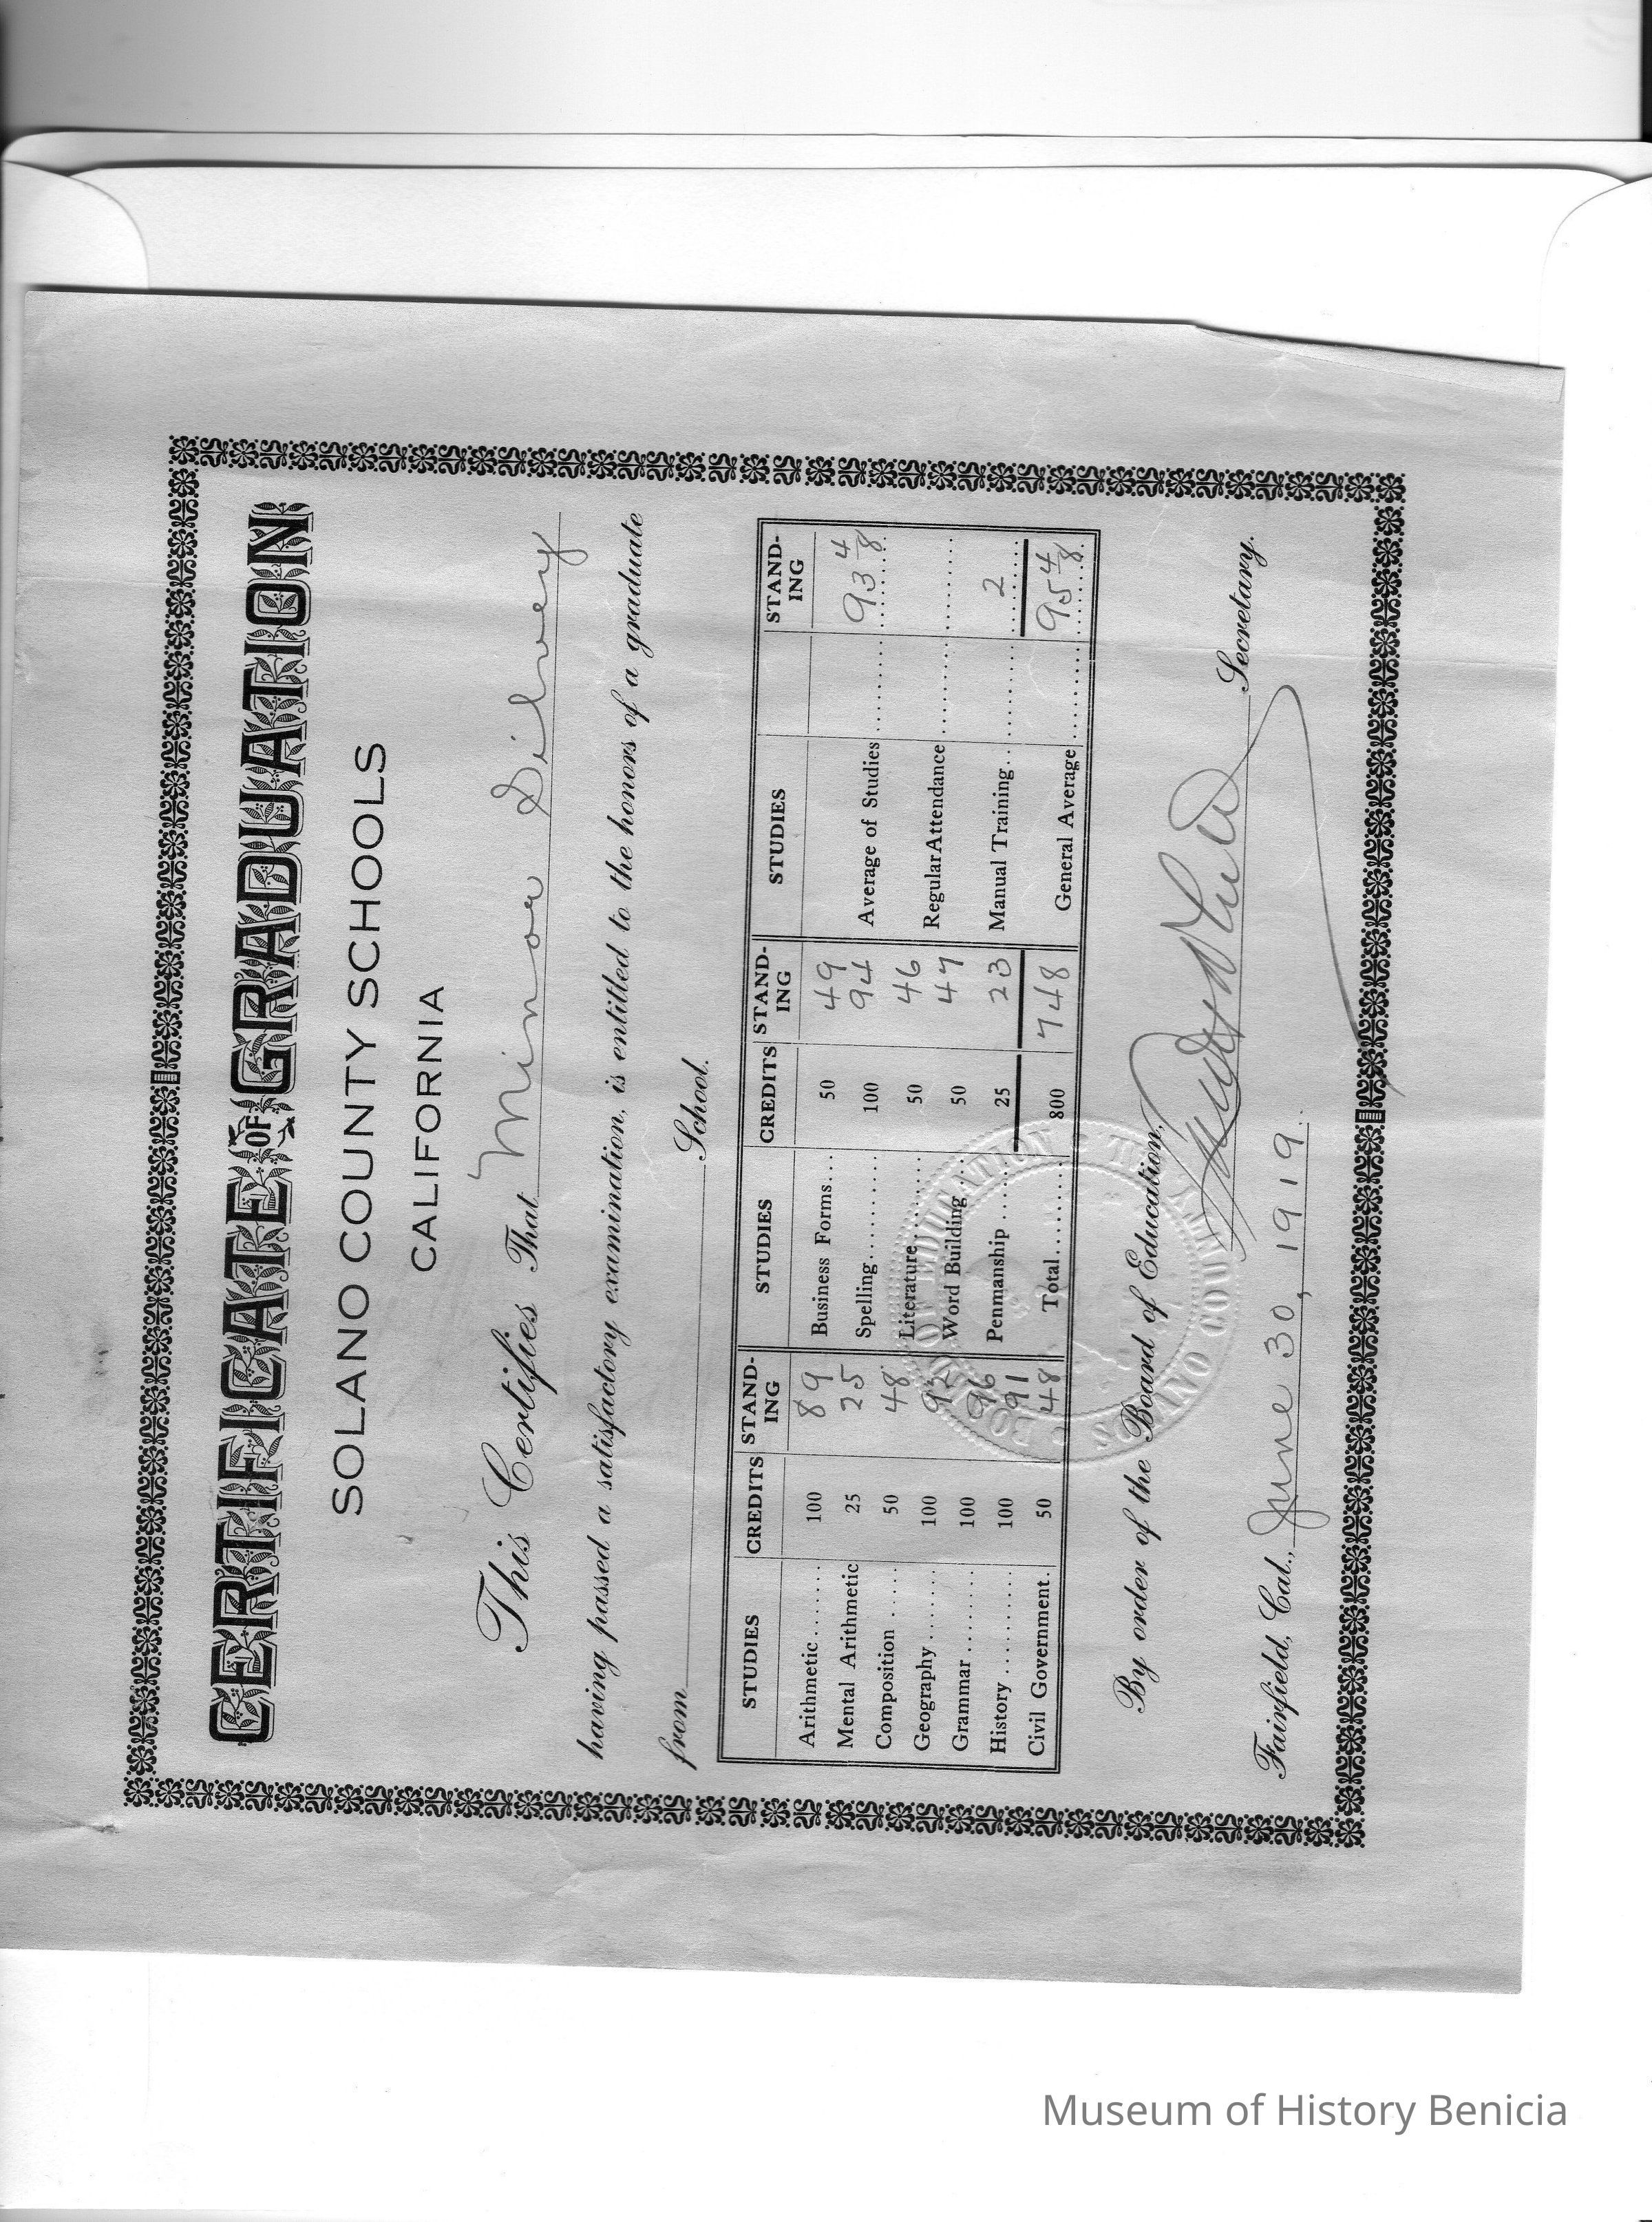 CERTIFICATE OF GRADUATION
SOLANO COUNTY SCHOOLS
CALIFORNIA
This Certifies That Minor Silvey
having passed a satisfactory examination, is entitled to the honors of a graduate
from School.
STUDIES CREDITS STAND-ING STUDIES CREDITS STAND-ING STUDIES STAND-ING
Arithmetic ....... 100 89 Business Forms.... 50 49
Mental Arithmetic 25 25 Spelling.......... 100 94 Average of Studies 93 4/8
Composition ..... 50 48 Literature......... 50 46
Geography ....... 100 92 Word Building ... 50 47 Regular Attendance
Grammar ........ 100 96 Penmanship ...... 25 23 Manual Training.. 2
History .......... 100 91
Civil Government. 50 48 Total.......... 800 748 General Average 95 4/8
By order of the Board of Education,
Secretary.
Fairfield, Cal., June 30, 1919.
BOARD OF EDUCATION
SOLANO COUNTY
Museum of History Benicia